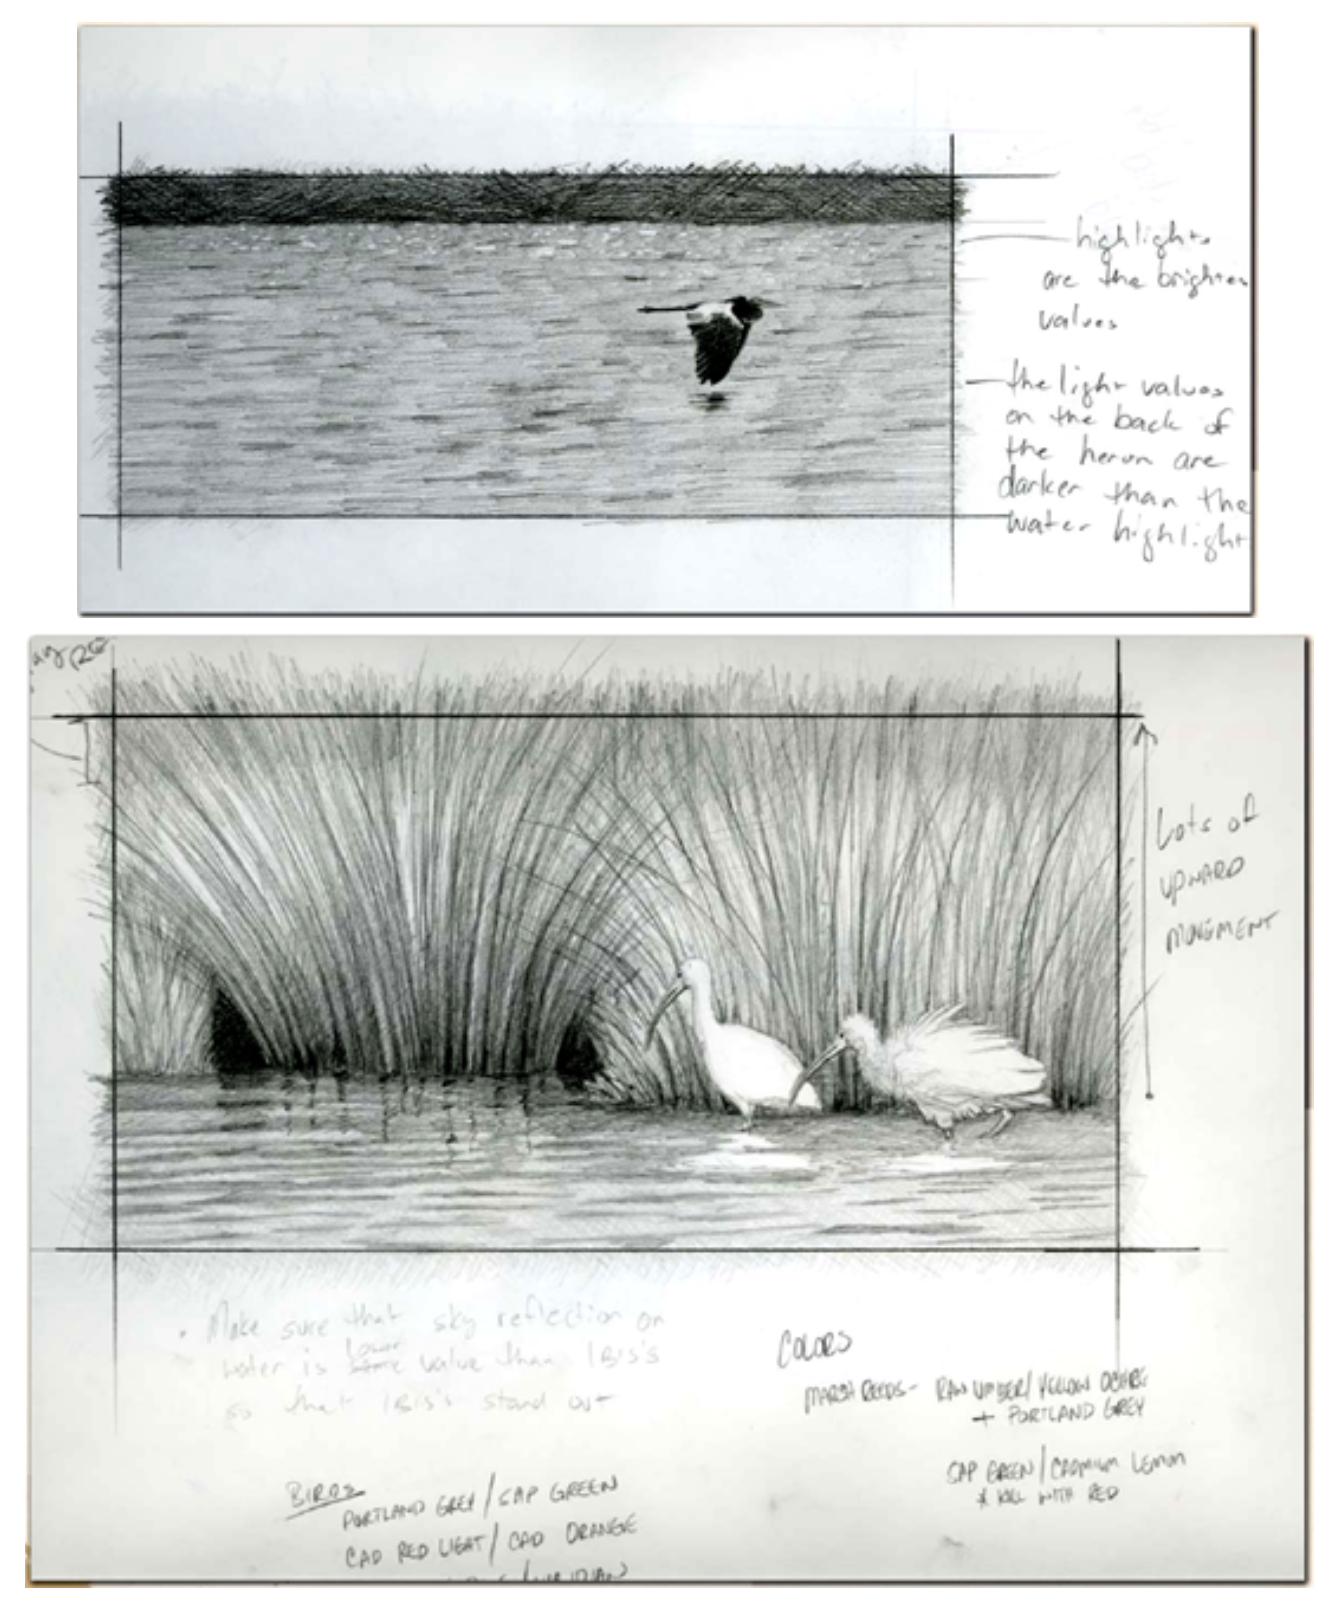 highlights
are the brighter
values
the light values
on the back of
the heron are
darker than the
water highlight
Lots of
UPWARD
MOVEMENT
• Make sure that sky reflection on
lower
water is same value than IBIS's
so that IBIS's stand out
COLORS
MARSH REEDS - RAW UMBER/YELLOW OCHRE
+ PORTLAND GREY
SAP GREEN/CADMIUM LEMON
& KILL WITH RED
BIRDS
PORTLAND GREY/SAP GREEN
CAD RED LIGHT/CAD ORANGE
/VIRIDIAN